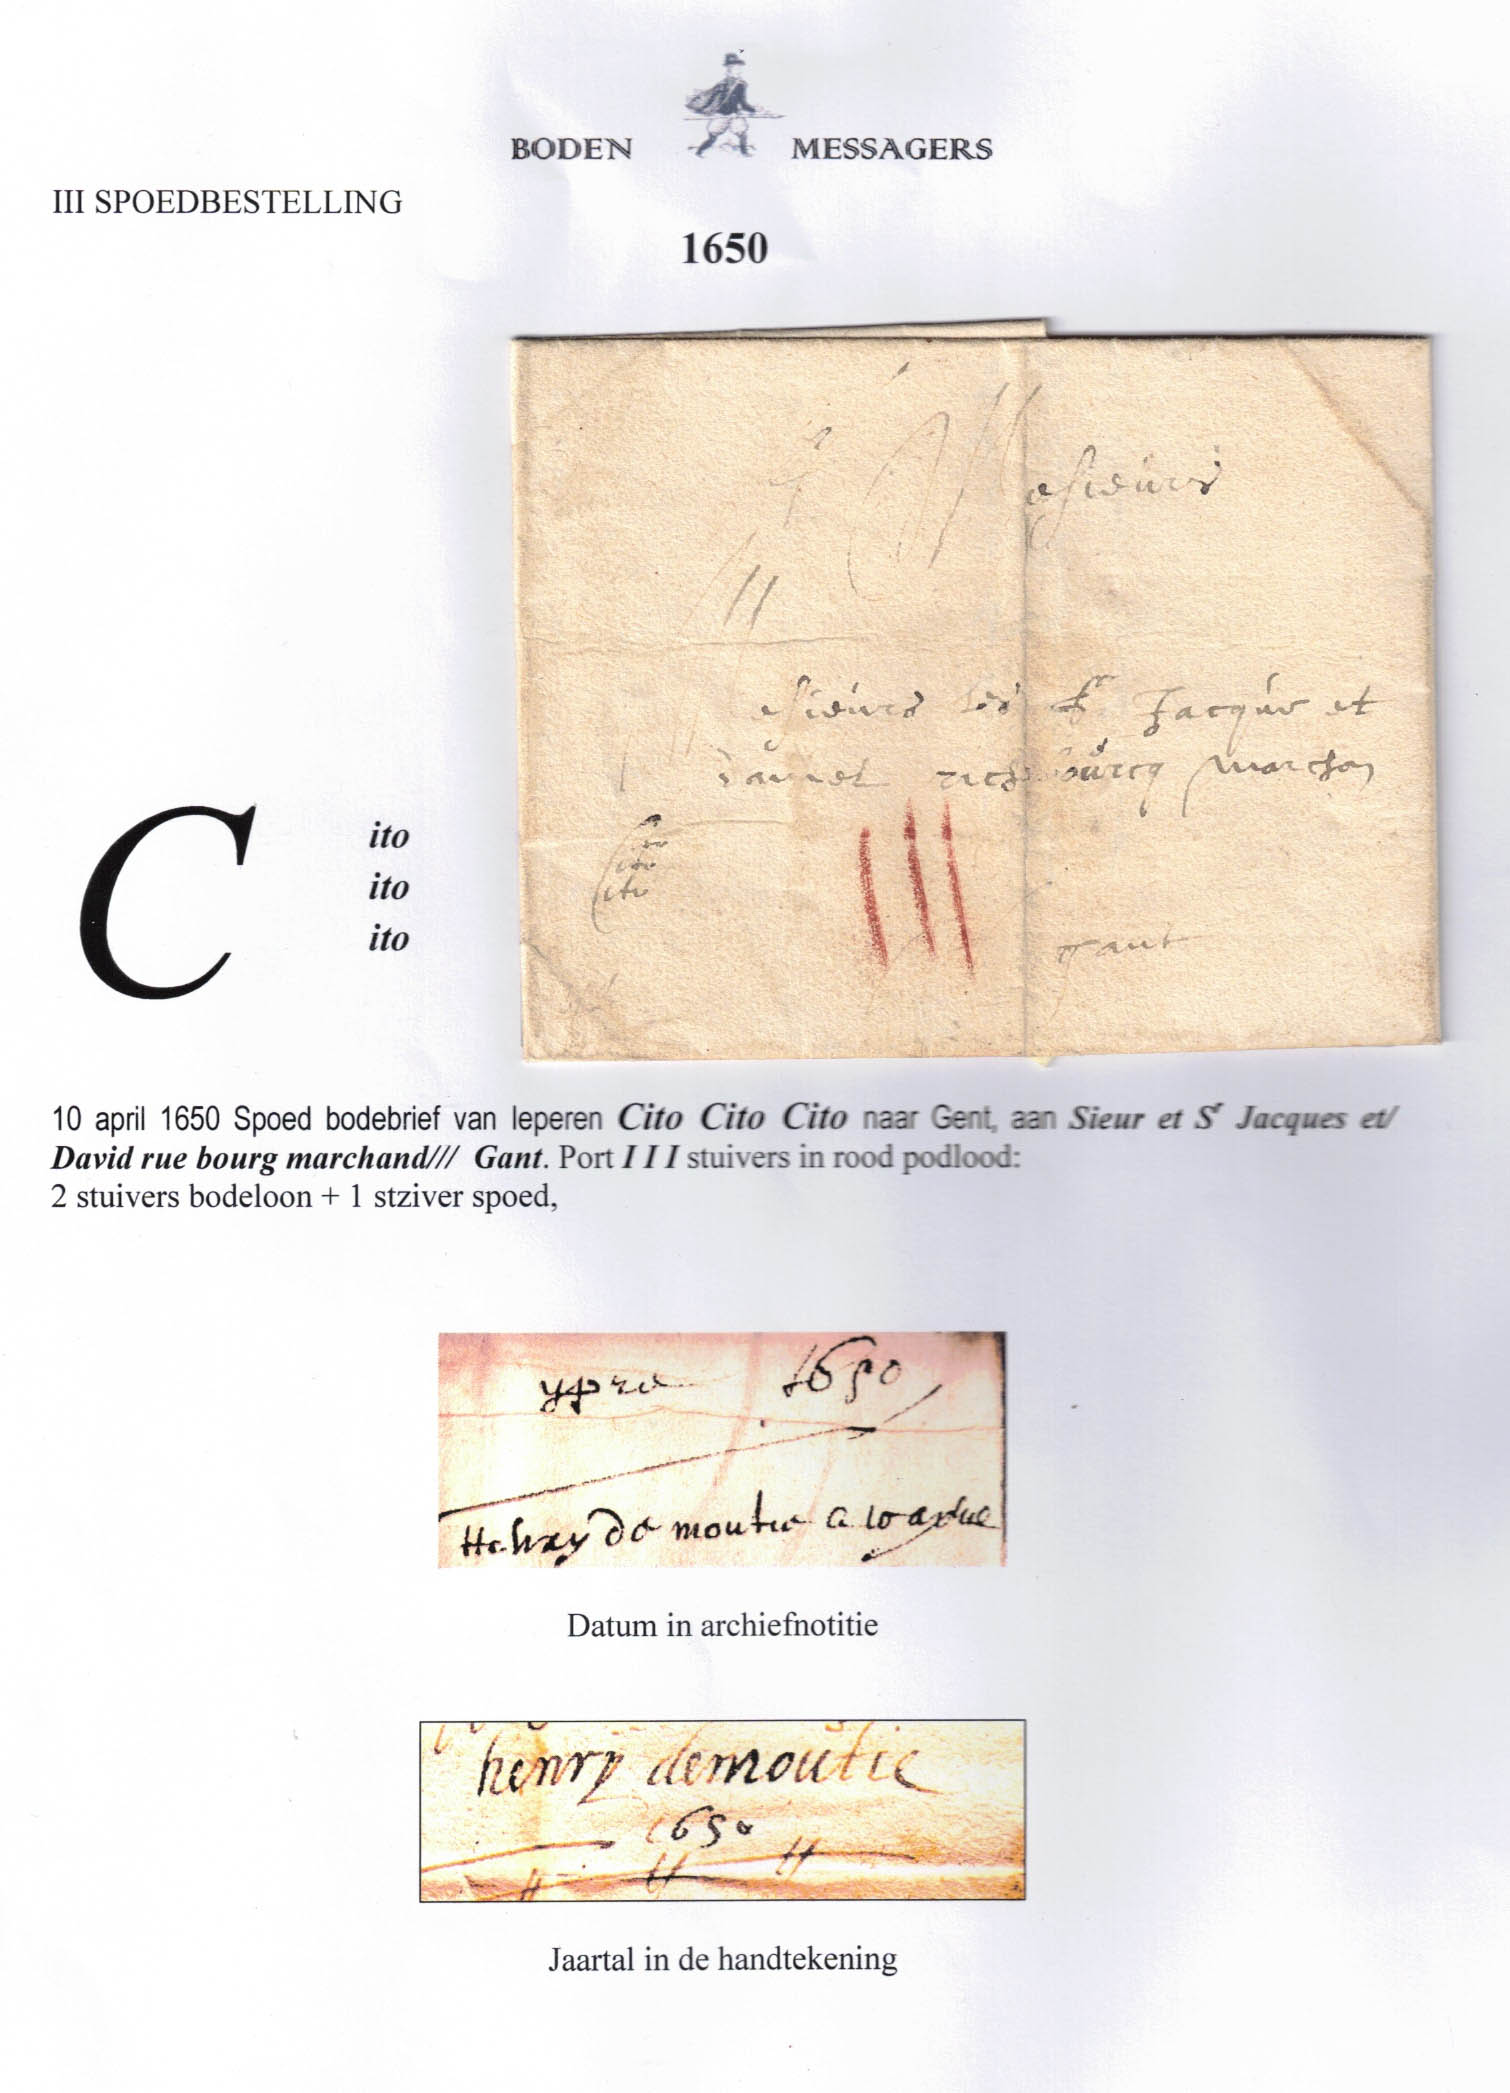 BODEN MESSAGERS
III SPOEDBESTELLING
1650
Mesieurs
esieurs les Sr Jacque et
daniel richebourcq marchan
Cito
ito
ito
gant
C ito
ito
ito
10 april 1650 Spoed bodebrief van Ieperen Cito Cito Cito naar Gent, aan Sieur et Sr Jacques et/
David rue bourg marchand/// Gant. Port I I I stuivers in rood podlood:
2 stuivers bodeloon + 1 stziver spoed,
ypre 1650
de moutie a
Datum in archiefnotitie
henry demoutie
1650
Jaartal in de handtekening